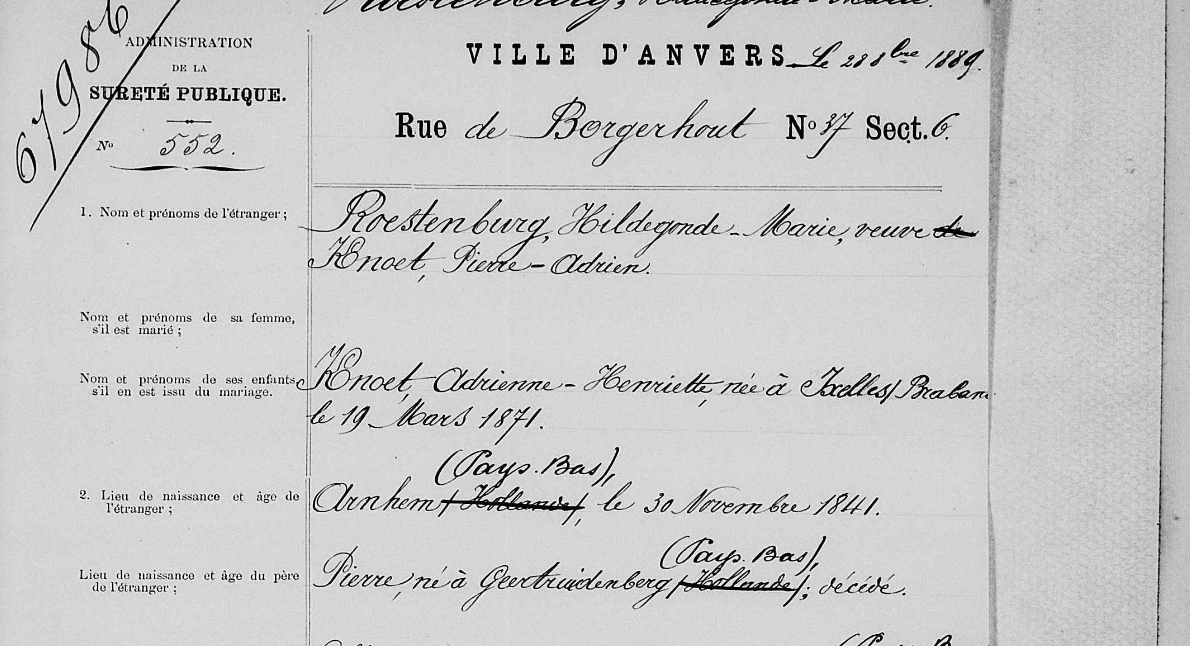 Roestenburg, Hildegonde-Marie.
67986
ADMINISTRATION
DE LA
SURETÉ PUBLIQUE.
No 552.
VILLE D'ANVERS Le 28 8bre 1889.
Rue de Borgerhout No 37 Sect. 6.
1. Nom et prénoms de l'étranger;
Roestenburg, Hildegonde-Marie, veuve de
Knoet, Pierre-Adrien.
Nom et prénoms de sa femme,
s'il est marié;
Nom et prénoms de ses enfants,
s'il en est issu du mariage.
Knoet, Adrienne-Henriette, née à Ixelles/Braban
le 19 Mars 1871.
2. Lieu de naissance et âge de
l'étranger;
(Pays-Bas),
Arnhem /Hollande/, le 30 Novembre 1841.
Lieu de naissance et âge du père
de l'étranger;
(Pays-Bas),
Pierre, né à Geertruidenberg /Hollande/; décédé.